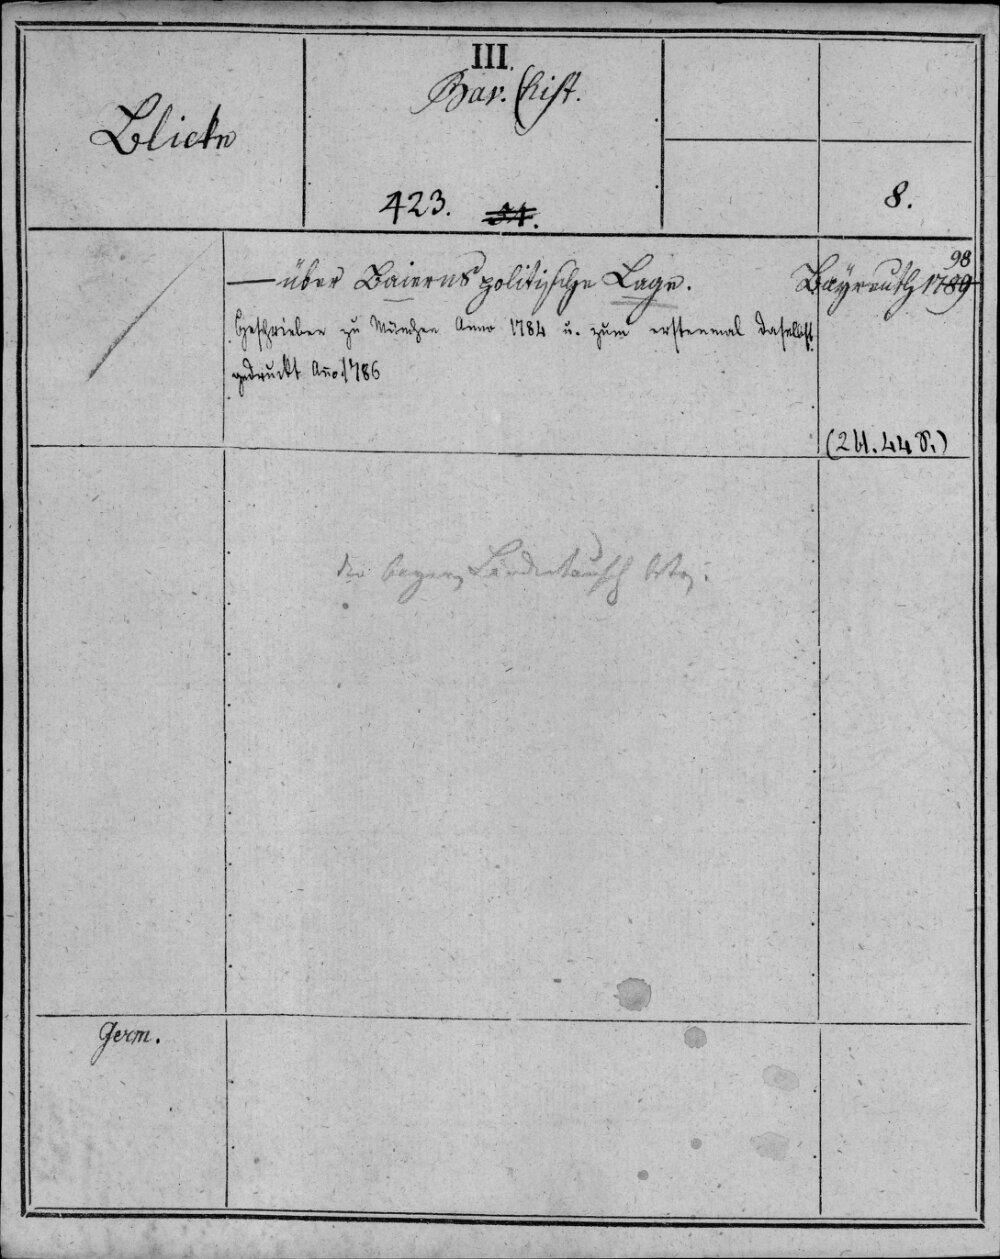 III.
Blicke
Bav. Hist.
423. 34.
8.
98
— über Baierns politische Lage. Bayreuth 1789
Geschrieben zu München Anno 1784 u. zum erstenmal daselbst
gedruckt Año 1786
(2 Bl. 44 S.)
den bayer. Ländertausch betr.
Germ.